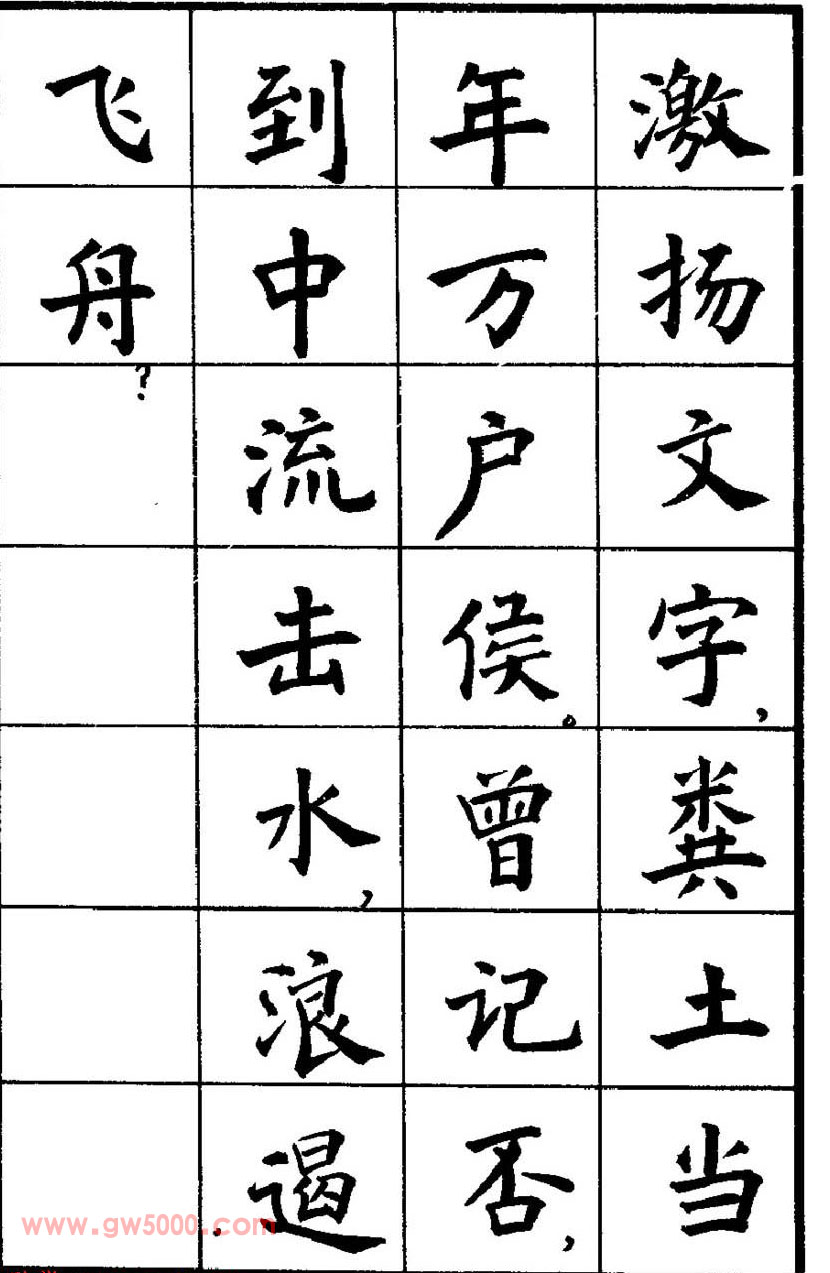 激扬文字,粪土当
年万户侯。曾记否,
到中流击水,浪遏
飞舟?
www.gw5000.com